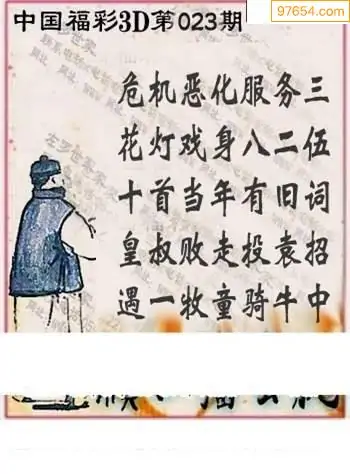 97654.com
中国福彩3D第023期
危机恶化服务三
花灯戏身八二伍
十首当年有旧词
皇叔败走投袁招
遇一牧童骑牛中